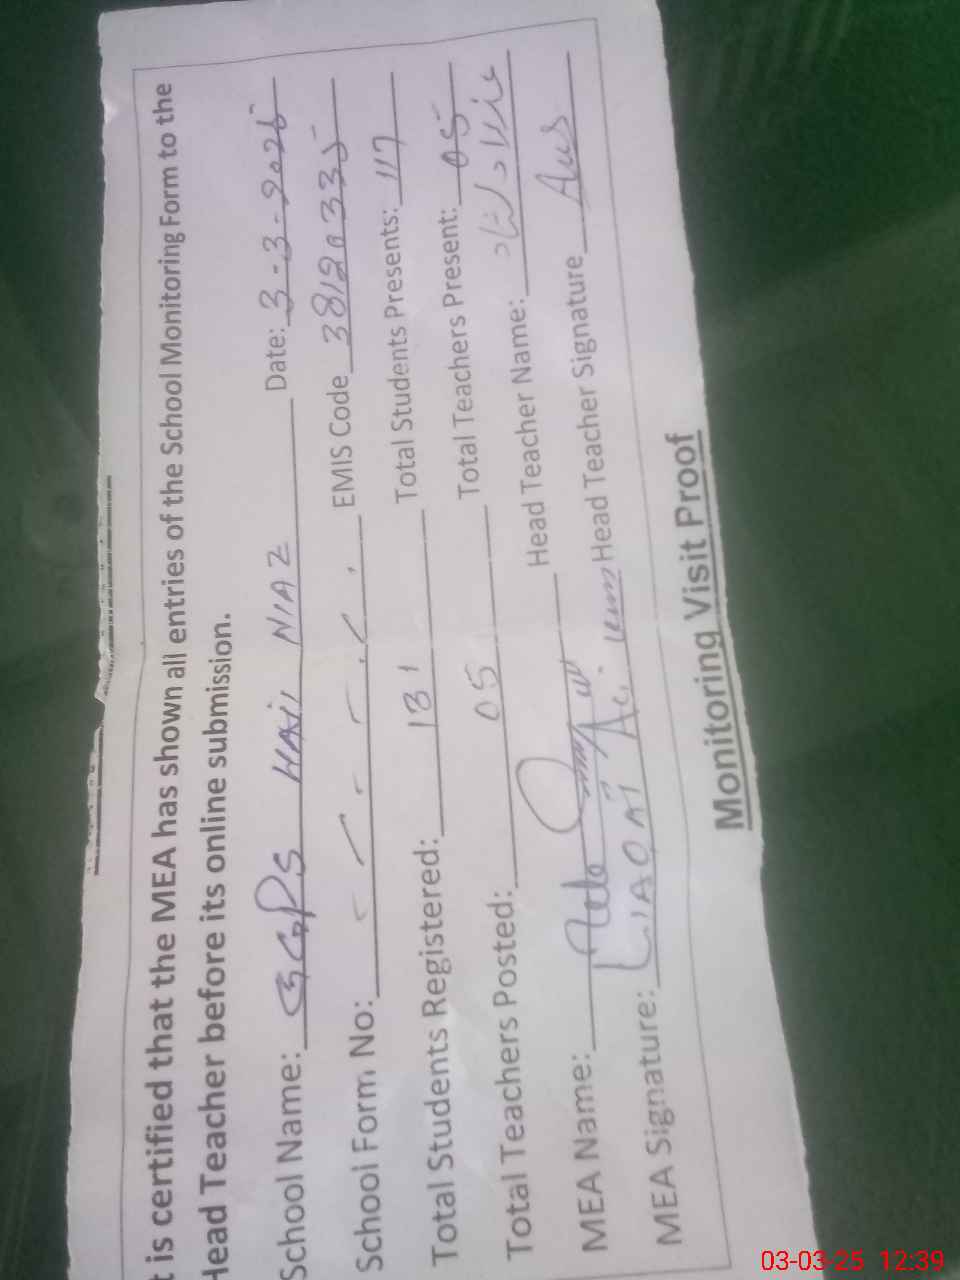 t is certified that the MEA has shown all entries of the School Monitoring Form to the
Head Teacher before its online submission.
School Name: GGPS HAii NIAZ Date: 3-3-2025
School Form No: EMIS Code 38120335
Total Students Registered: 131 Total Students Presents: 117
Total Teachers Posted: 05 Total Teachers Present: 05
MEA Name: Head Teacher Name:
MEA Signature: Head Teacher Signature
Monitoring Visit Proof
03-03-25 12:39